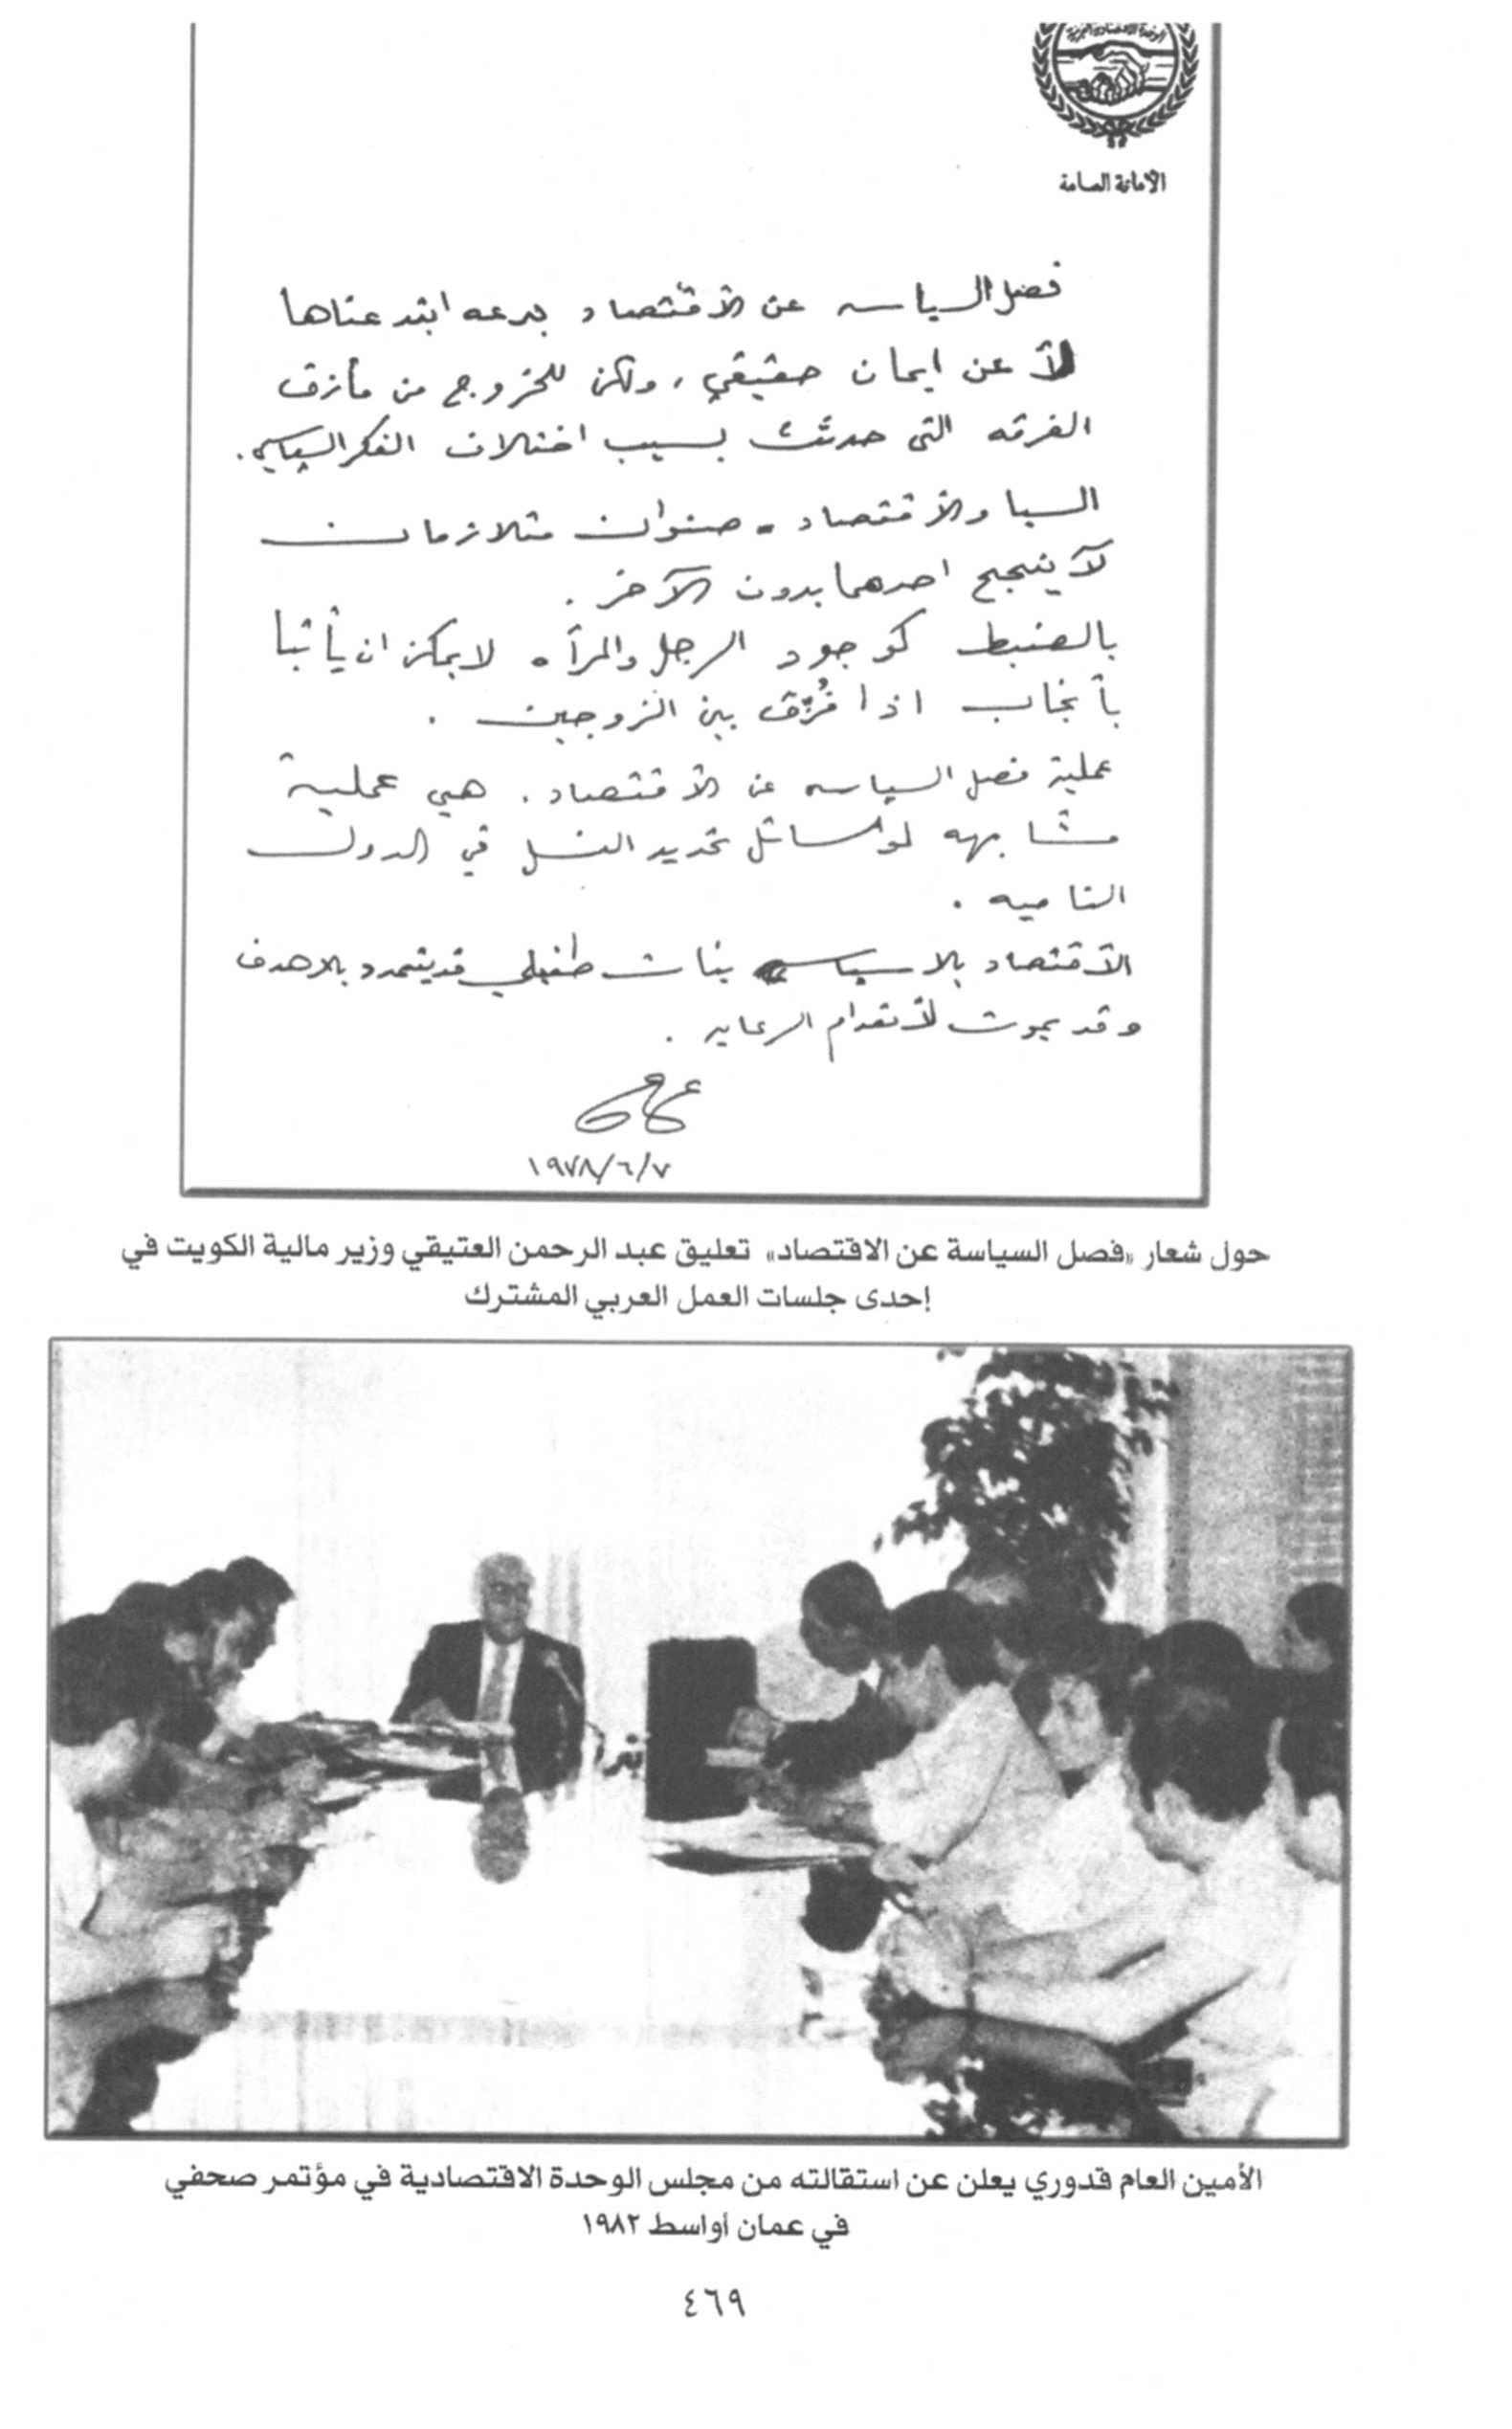 الوحدة الاقتصادية العربية
الأمانة العامة
فصل السياسه عن الأقتصاد بدعه ابتدعناها
لآ عن ايمان حقيقي، ولكن للخروج من مأزق
الفرقه التي حدثت بسبب اختلاف الفكر السياسي.
السيا والأقتصاد - صنوان متلازمان
لآ ينجح احدهما بدون الآخر.
بالضبط كوجود الرجل والمرأه لا يمكن ان يأتيا
بأنجاب اذا فُرّق بين الزوجين.
عملية فصل السياسه عن الأقتصاد. هي عملية
مشابهه لوسائل تحديد النسل في الدول
الناميه.
الأقتصاد بلا سياسه نبات طفيلي قد يتمدد بلا هدف
وقد يموت لأنعدام الرعايه.
١٩٧٨/٦/٧
حول شعار «فصل السياسة عن الاقتصاد» تعليق عبد الرحمن العتيقي وزير مالية الكويت في
إحدى جلسات العمل العربي المشترك
الأمين العام قدوري يعلن عن استقالته من مجلس الوحدة الاقتصادية في مؤتمر صحفي
في عمان أواسط ١٩٨٢
٤٦٩